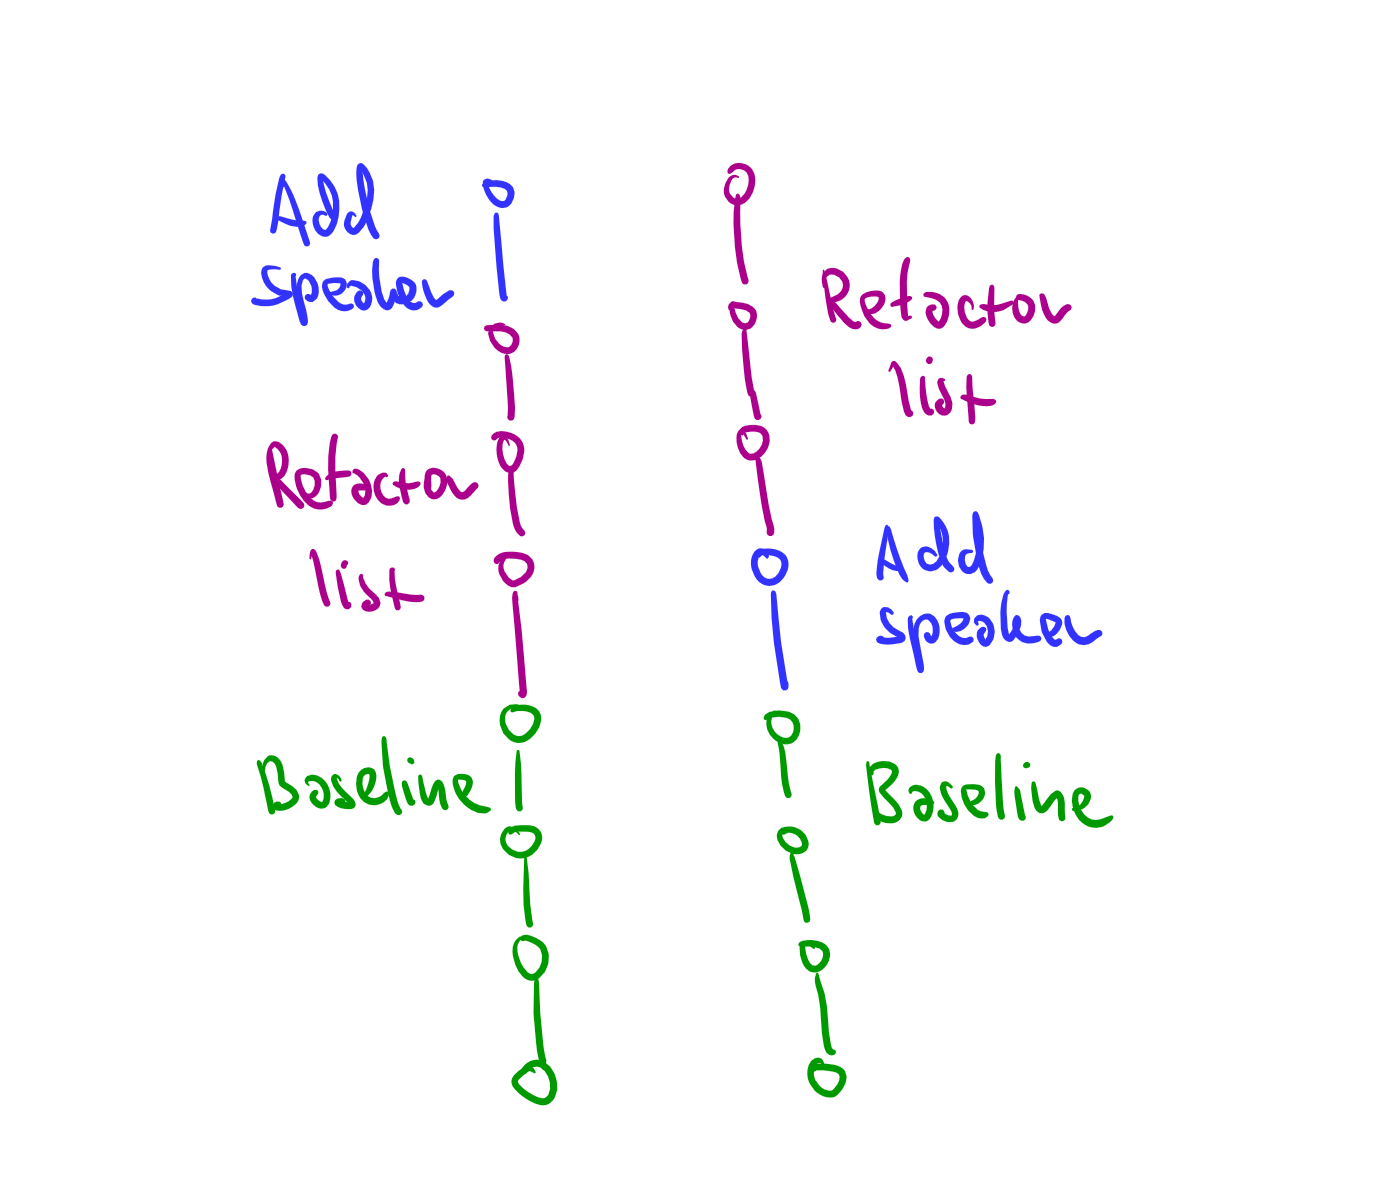 Add
speaker
Refactor
list
Baseline
Refactor
list
Add
speaker
Baseline